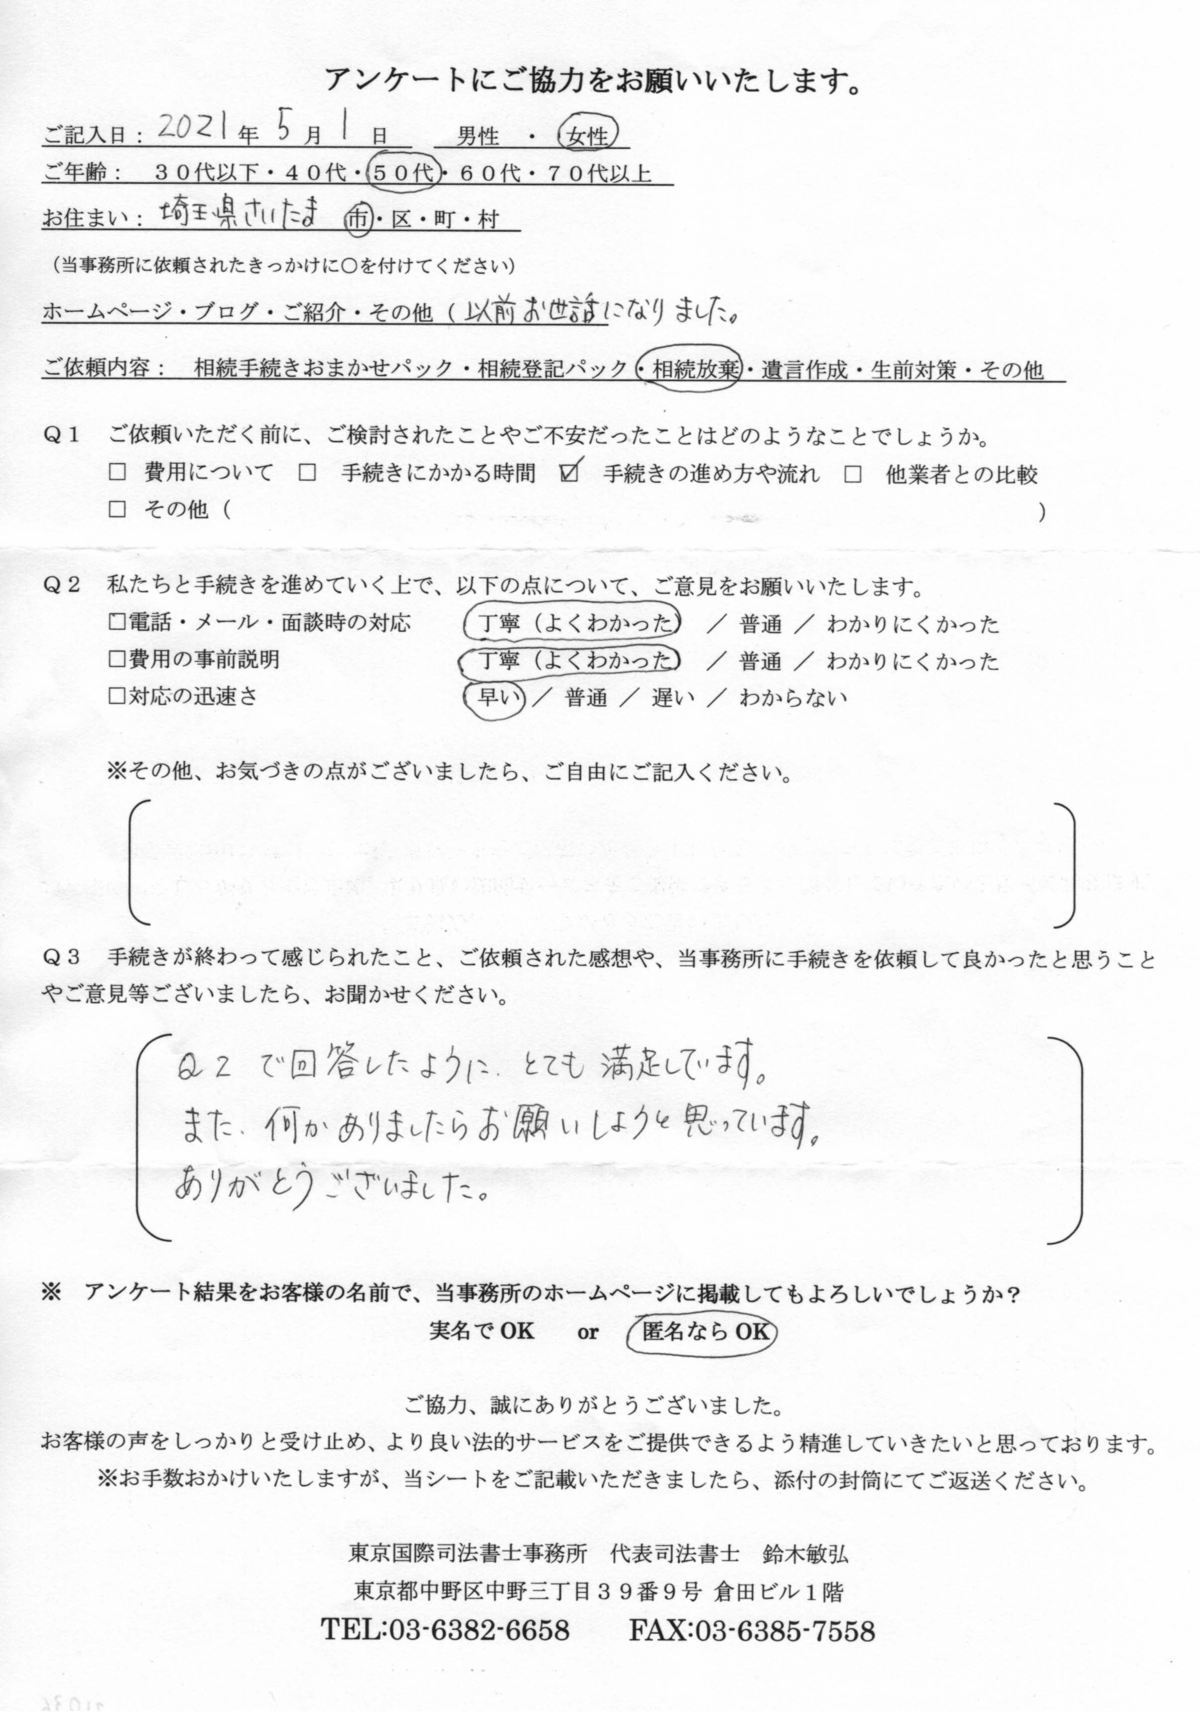 アンケートにご協力をお願いいたします。
ご記入日： 2021 年 5 月 1 日　男性 ・ 女性
ご年齢：　３０代以下・４０代・５０代・６０代・７０代以上
お住まい： 埼玉県さいたま 市・区・町・村
（当事務所に依頼されたきっかけに〇を付けてください）
ホームページ・ブログ・ご紹介・その他（ 以前お世話になりました。
ご依頼内容：　相続手続きおまかせパック・相続登記パック・相続放棄・遺言作成・生前対策・その他
Ｑ１　ご依頼いただく前に、ご検討されたことやご不安だったことはどのようなことでしょうか。
□ 費用について □ 手続きにかかる時間 ☑ 手続きの進め方や流れ □ 他業者との比較
□ その他（　　　　　）
Ｑ２　私たちと手続きを進めていく上で、以下の点について、ご意見をお願いいたします。
□電話・メール・面談時の対応　丁寧（よくわかった） ／ 普通 ／ わかりにくかった
□費用の事前説明　丁寧（よくわかった） ／ 普通 ／ わかりにくかった
□対応の迅速さ　早い ／ 普通 ／ 遅い ／ わからない
※その他、お気づきの点がございましたら、ご自由にご記入ください。
Ｑ３　手続きが終わって感じられたこと、ご依頼された感想や、当事務所に手続きを依頼して良かったと思うこと
やご意見等ございましたら、お聞かせください。
Q2 で回答したように、とても満足しています。
また、何かありましたらお願いしようと思っています。
ありがとうございました。
※　アンケート結果をお客様の名前で、当事務所のホームページに掲載してもよろしいでしょうか？
実名で OK　or　匿名なら OK
ご協力、誠にありがとうございました。
お客様の声をしっかりと受け止め、より良い法的サービスをご提供できるよう精進していきたいと思っております。
※お手数おかけいたしますが、当シートをご記載いただきましたら、添付の封筒にてご返送ください。
東京国際司法書士事務所　代表司法書士　鈴木敏弘
東京都中野区中野三丁目３９番９号 倉田ビル１階
TEL:03-6382-6658　FAX:03-6385-7558